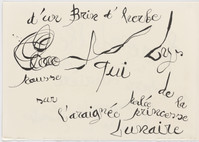 d'un Brin d'herbe
qui
Lys
pousse
sur
de la
l'araignée
princesse
lunaire